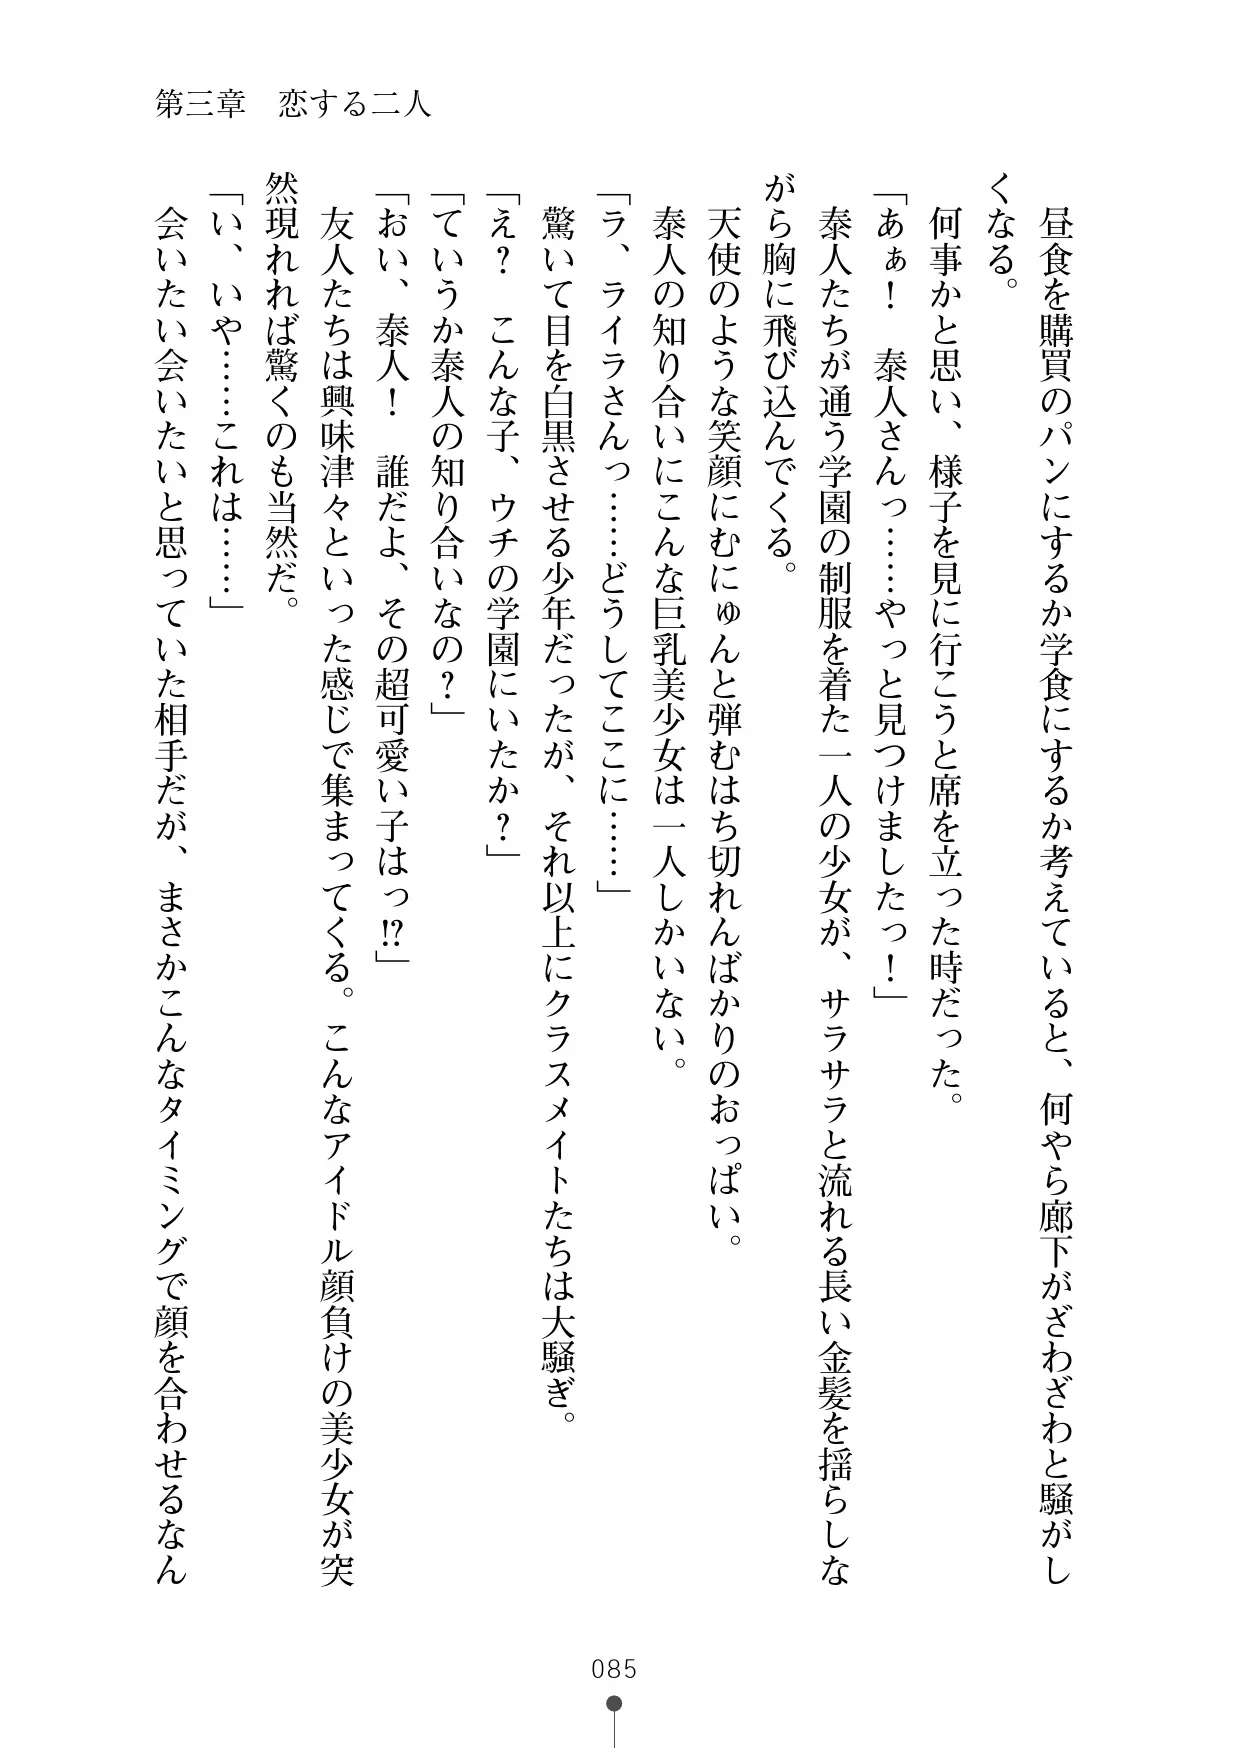 第三章　恋する二人
昼食を購買のパンにするか学食にするか考えていると、何やら廊下がざわざわと騒がし
くなる。
何事かと思い、様子を見に行こうと席を立った時だった。
「あぁ！　泰人さんっ……やっと見つけましたっ！」
泰人たちが通う学園の制服を着た一人の少女が、サラサラと流れる長い金髪を揺らしな
がら胸に飛び込んでくる。
「ラ、ライラさんっ……どうしてここに……」
驚いて目を白黒させる少年だったが、それ以上にクラスメイトたちは大騒ぎ。
「え？　こんな子、ウチの学園にいたか？」
「ていうか泰人の知り合いなの？」
「おい、泰人！　誰だよ、その超可愛い子はっ!?」
友人たちは興味津々といった感じで集まってくる。こんなアイドル顔負けの美少女が突
然現れれば驚くのも当然だ。
「い、いや……これは……」
会いたい会いたいと思っていた相手だが、まさかこんなタイミングで顔を合わせるなん
085